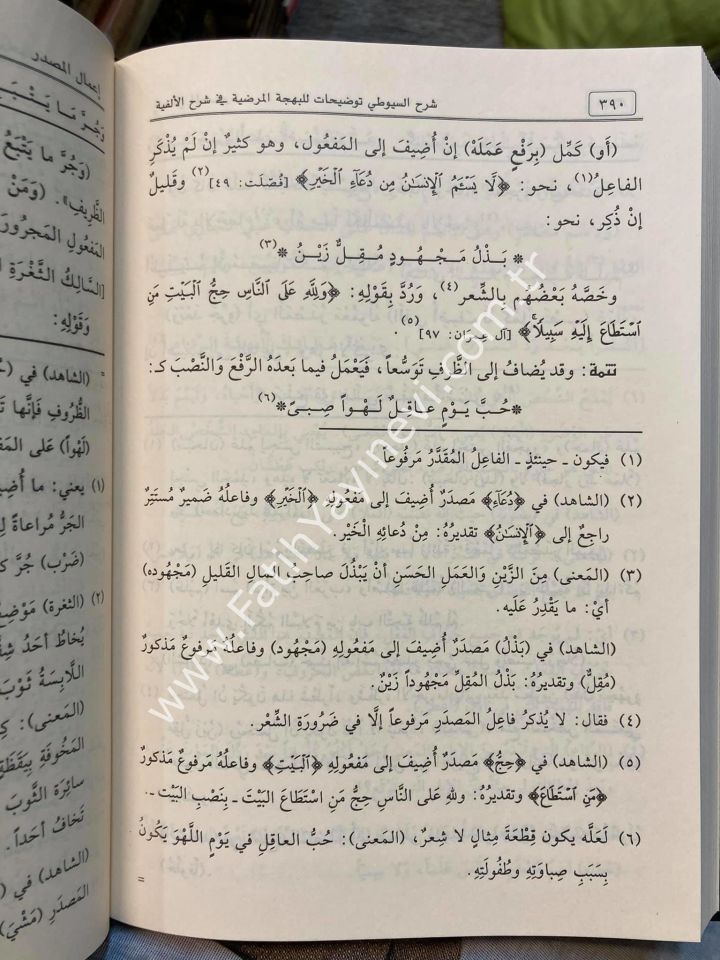 شرح السيوطي توضيحات للبهجة المرضية في شرح الألفية
٣٩٠
(أَو) كَمِّل (بِرَفْعٍ عَمَلَهْ) إنْ أُضِيفَ إلى المَفْعُول، وهو كثيرٌ إنْ لَمْ يُذْكَرِ
الفاعِلُ(١)، نحو: ﴿لَا يَسْـَٔمُ الْإِنسَـٰنُ مِن دُعَآءِ الْخَيْرِ﴾ [فُصِّلَت: ٤٩](٢) وقَليلٌ
إنْ ذُكِر، نحو:
* بَـذْلُ مَـجْـهُـودٍ مُـقِـلٌّ زَيْـنُ *(٣)
وخَصَّهُ بَعْضُهُم بالشِّعر(٤)، وَرُدَّ بِقَوْلِهِ: ﴿وَلِلَّهِ عَلَى النَّاسِ حِجُّ الْبَيْتِ مَنِ
اسْتَطَاعَ إِلَيْهِ سَبِيلًا﴾ [آل عِمرَان: ٩٧](٥)
تتمة: وقد يُضافُ إلى الظَّرفِ تَوَسُّعاً، فَيَعْمَلُ فيما بَعدَهُ الرَّفْعَ وَالنَّصْبَ كـ:
*حُبَّ يَـوْمٍ عـاقِـلٌ لَـهْـواً صِـبـىً*(٦)
(١) فيكون ـ حينئذٍ ـ الفاعِلُ المُقَدَّرُ مَرفُوعاً
(٢) (الشاهد) في ﴿دُعَآءِ﴾ مَصْدَرٌ أُضِيفَ إلى مَفعُولِهِ ﴿الْخَيْرِ﴾ وفاعلُهُ ضَميرٌ مُسْتَتِرٌ
راجِعٌ إلى ﴿الْإِنسَـٰنُ﴾ تقديرُهُ: مِنْ دُعائِهِ الْخَيْرَ.
(٣) (المَعنى) مِنَ الزَّيْنِ والعَمَلِ الحَسَنِ أنْ يَبْذُلَ صاحِبُ المالِ القَليلِ (مَجْهُوده)
أيْ: ما يَقْدِرُ عَلَيه.
(الشاهد) في (بَذْلُ) مَصْدَرٌ أُضِيفَ إلى مَفعُولِهِ (مَجْهُود) وفاعلُهُ مَرفوعٌ مَذكورٌ
(مُقِلٌّ) وتقديرُهُ: بَذْلُ المُقِلِّ مَجْهُوداً زَيْنٌ.
(٤) فقال: لا يُذكرُ فاعِلُ المَصدَرِ مَرفوعاً إلَّا في ضَرُورَةِ الشِّعْر.
(٥) (الشاهد) في ﴿حِجُّ﴾ مَصدَرٌ أُضِيفَ إلى مَفعُولِهِ ﴿الْبَيْتِ﴾ وفاعلُهُ مَرفوعٌ مَذكورٌ
﴿مَنِ اسْتَطَاعَ﴾ وتقديرُهُ: وللهِ عَلى النَّاسِ حِجُّ مَنِ اسْتَطَاعَ البَيْتَ ـ بِنَصْبِ البَيْت ـ.
(٦) لَعَلَّه يكون قِطْعَةَ مِثالٍ لا شِعرٌ، (المَعنى): حُبُّ العاقِلِ في يَوْمٍ اللَّهْوَ يَكُونُ
بِسَبَبِ صِباوَتِهِ وطُفُولَتِهِ.
=
www.FatihYayinevi.com.tr
إعمال المصدر
وَجُرَّ مَا يَتْبَـ
(وَجُرَّ ما يَتْبَعُ
الظَّرِيفِ". (وَمَنْ
المَفعُولِ المَجرُورَ
[السَّالِكُ الثُّغْرَةَ ا
وَقَوْلِهِ:
= (الشاهد) في (حُ
الظُّرُوفِ فَإنَّها تَ
(لَهْواً) عَلى المَف
(١) يعني: ما أُضِيـ
الجَرُّ مُراعاةً لِ
(ضَرْب) جُرَّ كـ
(٢) (الثغرة) مَوْضِعُ
يُخاطُ أحَدُ شِقَّـ
اللَّابِسَةُ ثَوْبَ
(المَعنى): كِـ
المَخُوفَةِ بِيَقَظَةٍ
سائِرَة الثَّوبَ
تَخافُ أحَداً.
(الشاهد) في (ا
المَصدَرِ (مَشْيَ)